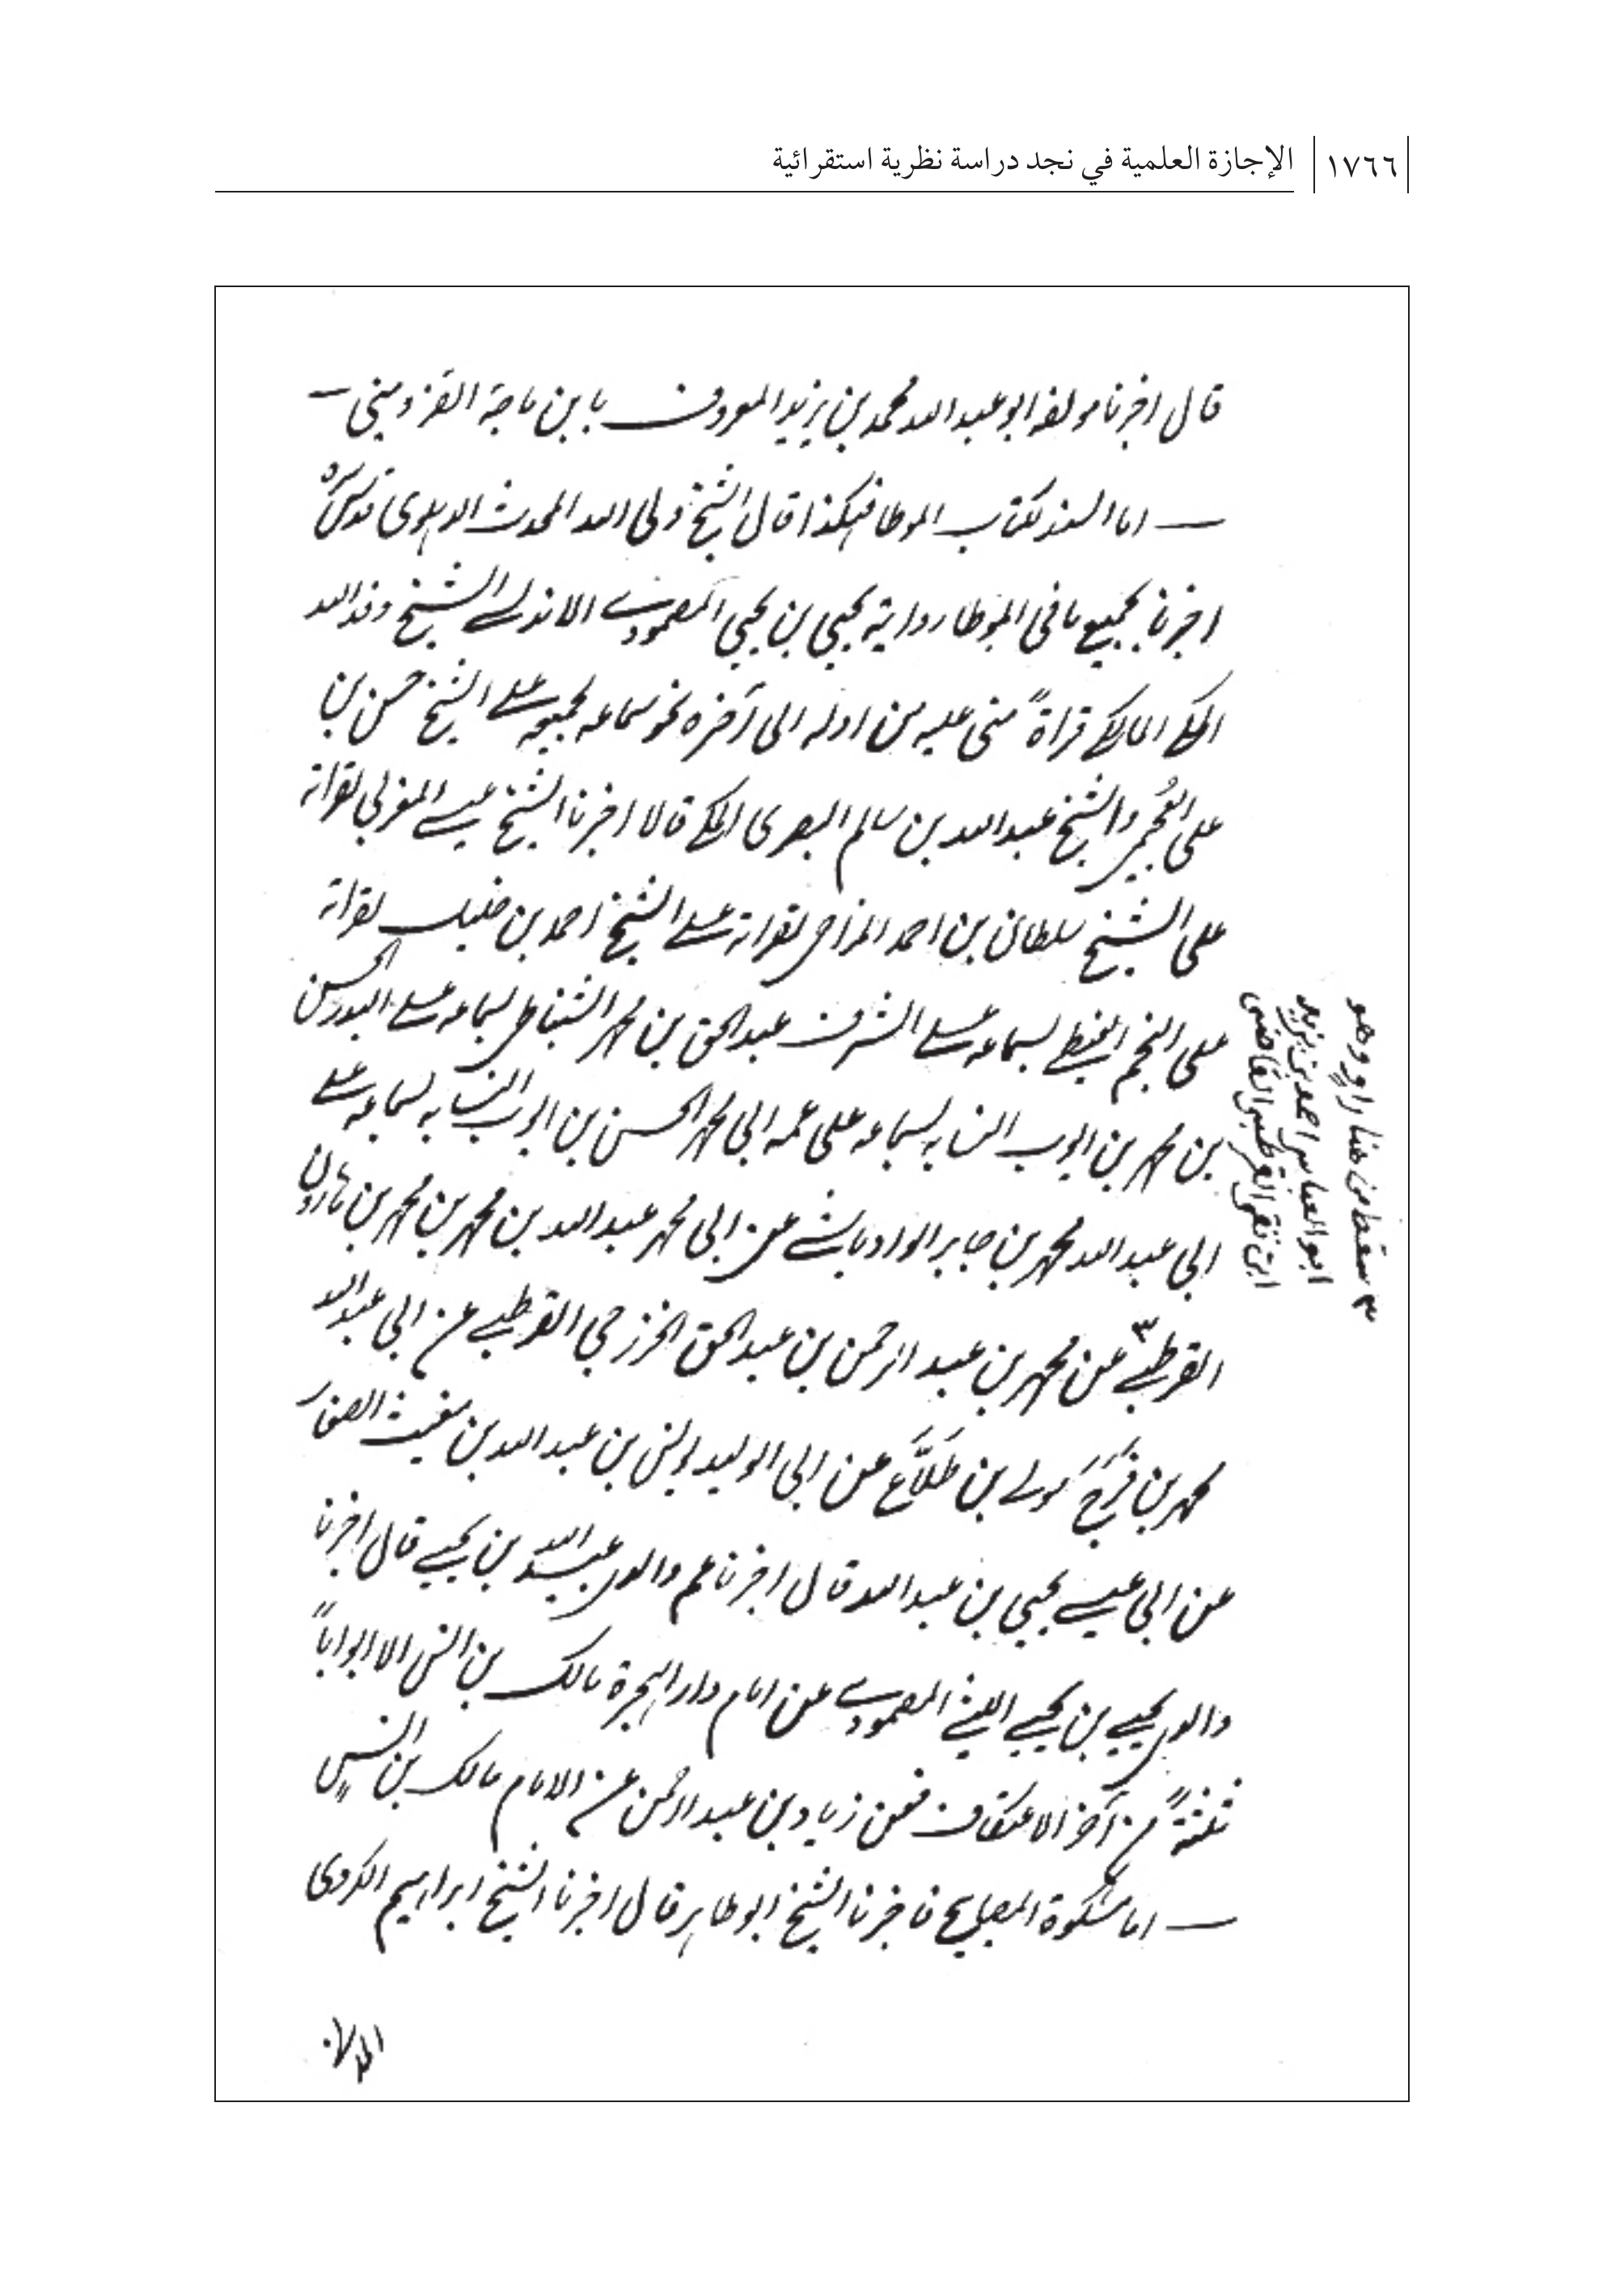 ١٧٦٦ الإجازة العلمية في نجد دراسة نظرية استقرائية
قال اخبرنا مولفه ابو عبد الله محمد بن يزيد المعروف بابن ماجة القزويني —
— اما السند لكتاب الموطا فهكذا قال الشيخ ولى الله المحدث الدهلوى قدس سره
اخبرنا بجميع ما فى الموطا رواية يحيى بن يحيى المصمودے الاندلسے الشيخ وفد الله
المكے المالكے قراةً منى عليه من اوله الى آخره نحو سماعه لجميعه علے الشيخ حسن بن
على العُجيمى والشيخ عبد الله بن سالم البصرى المكے قالا اخبرنا الشيخ عيسے المغربى بقراته
على الشيخ سلطان بن احمد المزاحى بقراته علے الشيخ احمد بن خليل بقراته
على النجم الغيطے بسماعه علے الشرف عبد الحق بن محمد السنباطى بسماعه علے البدر الحسن
بن محمد بن ايوب النسابه بسماعه على عمه ابى محمد الحسن بن ايوب النسابه بسماعه علے
ابى عبد الله محمد بن جابر الوادياشے عن ابى محمد عبد الله بن محمد بن محمد بن هارون
القرطبے٣ عن محمد بن عبد الرحمن بن عبد الحق الخزرجى القرطبے عن ابى عبد الله
محمد بن فَرَج مَولے بن طَلّاَع عن ابى الوليد يونس بن عبد الله بن مغيث الصفار
عن ابى عيسے يحيى بن عبد الله قال اخبرنا عم والدى عبيد الله بن يحيے قال اخبرنا
والدى يحيے بن يحيے الليثے المصمودے عن امام دار الهجرة مالك بن انس الا ابواباً
ثلثةً من آخر الاعتكاف فعن زياد بن عبد الرحمن عن الامام مالك بن انس
— اما مشكوة المصابيح فاخبرنا الشيخ ابو طاهر قال اخبرنا الشيخ ابراهيم الكردى
٣ سقط من هنا راوٍ وهو
ابو العباس احمد بن يزيد
ابن بقى القرطبى القاضى